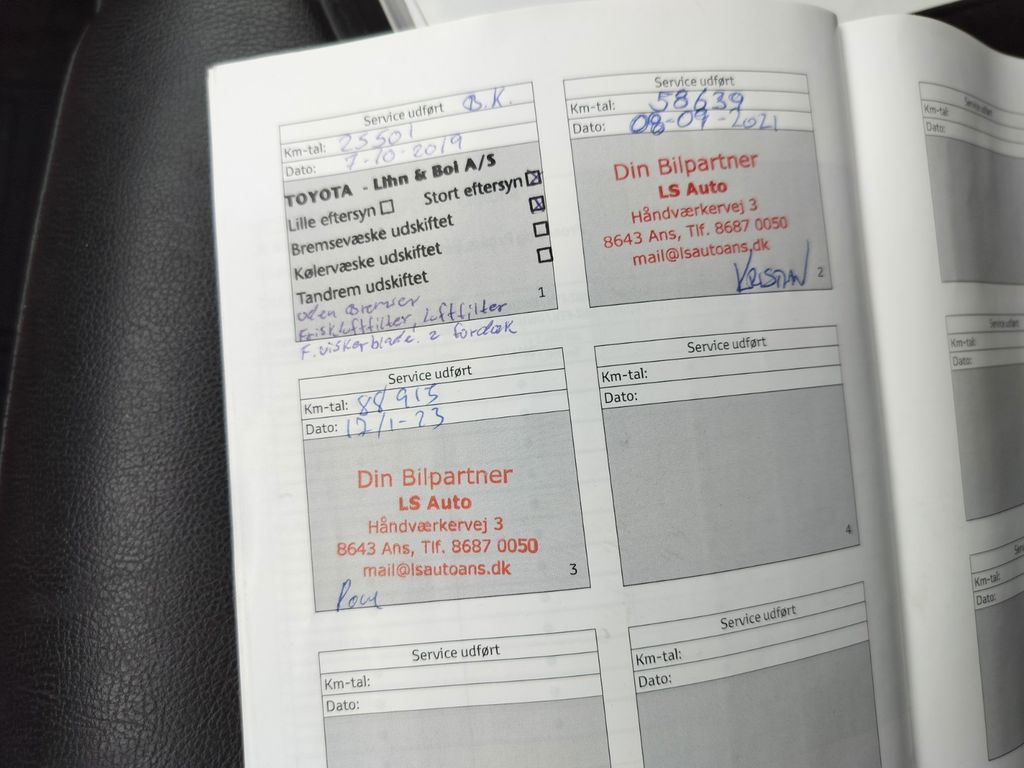 Service udført B.K.
Km-tal: 25501
Dato: 7-10-2019
TOYOTA - Lihn & Bol A/S
Lille eftersyn Stort eftersyn
Bremsevæske udskiftet
Kølervæske udskiftet
Tandrem udskiftet
uden Bremser
Friskluftfilter, luftfilter
F. viskerblade. 2 fordæk
1
Service udført
Km-tal: 58639
Dato: 08-09-2021
Din Bilpartner
LS Auto
Håndværkervej 3
8643 Ans, Tlf. 8687 0050
mail@lsautoans.dk
KRISTIAN
2
Service udført
Km-tal: 88913
Dato: 12/1-23
Din Bilpartner
LS Auto
Håndværkervej 3
8643 Ans, Tlf. 8687 0050
mail@lsautoans.dk
3
Service udført
Km-tal:
Dato:
4
Service udført
Km-tal:
Dato:
Service udført
Km-tal:
Dato:
Service udført
Km-tal:
Dato:
Service udført
Km-tal:
Dato:
Km-tal:
Dato: